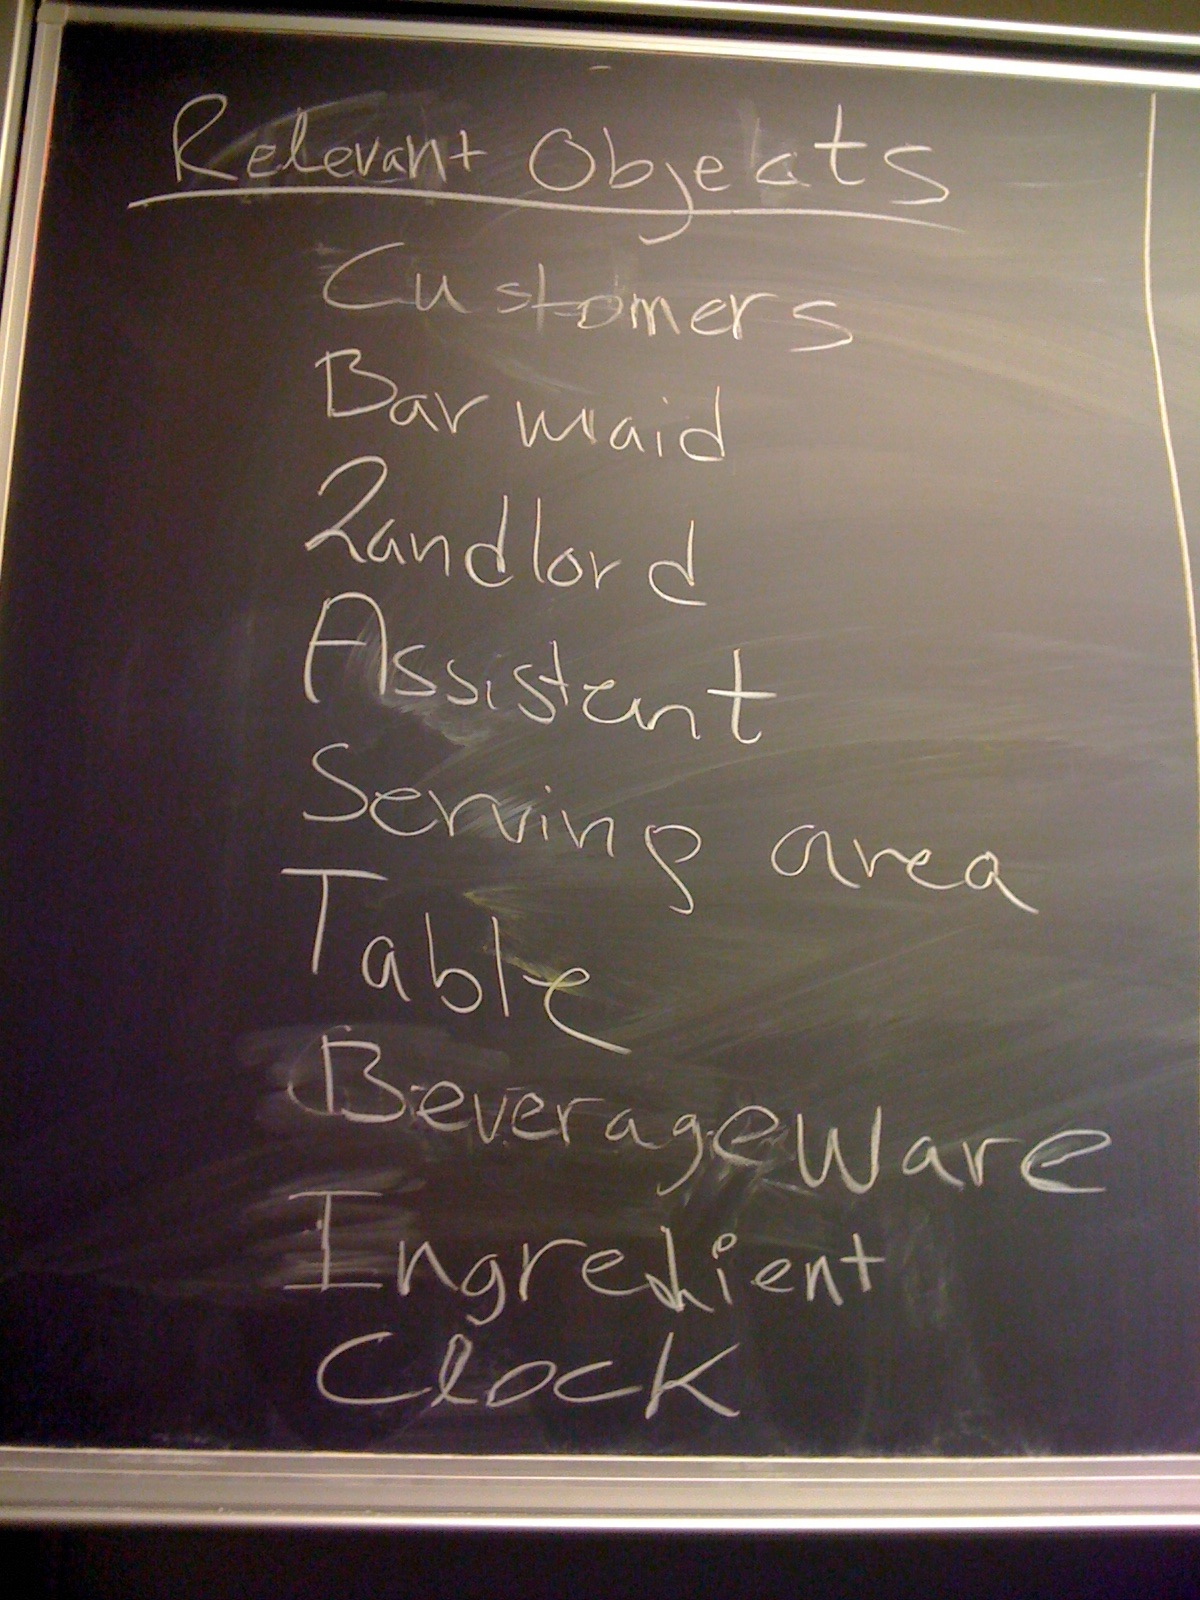 Relevant Objects
Customers
Bar maid
Landlord
Assistant
Serving area
Table
BeverageWare
Ingredient
Clock